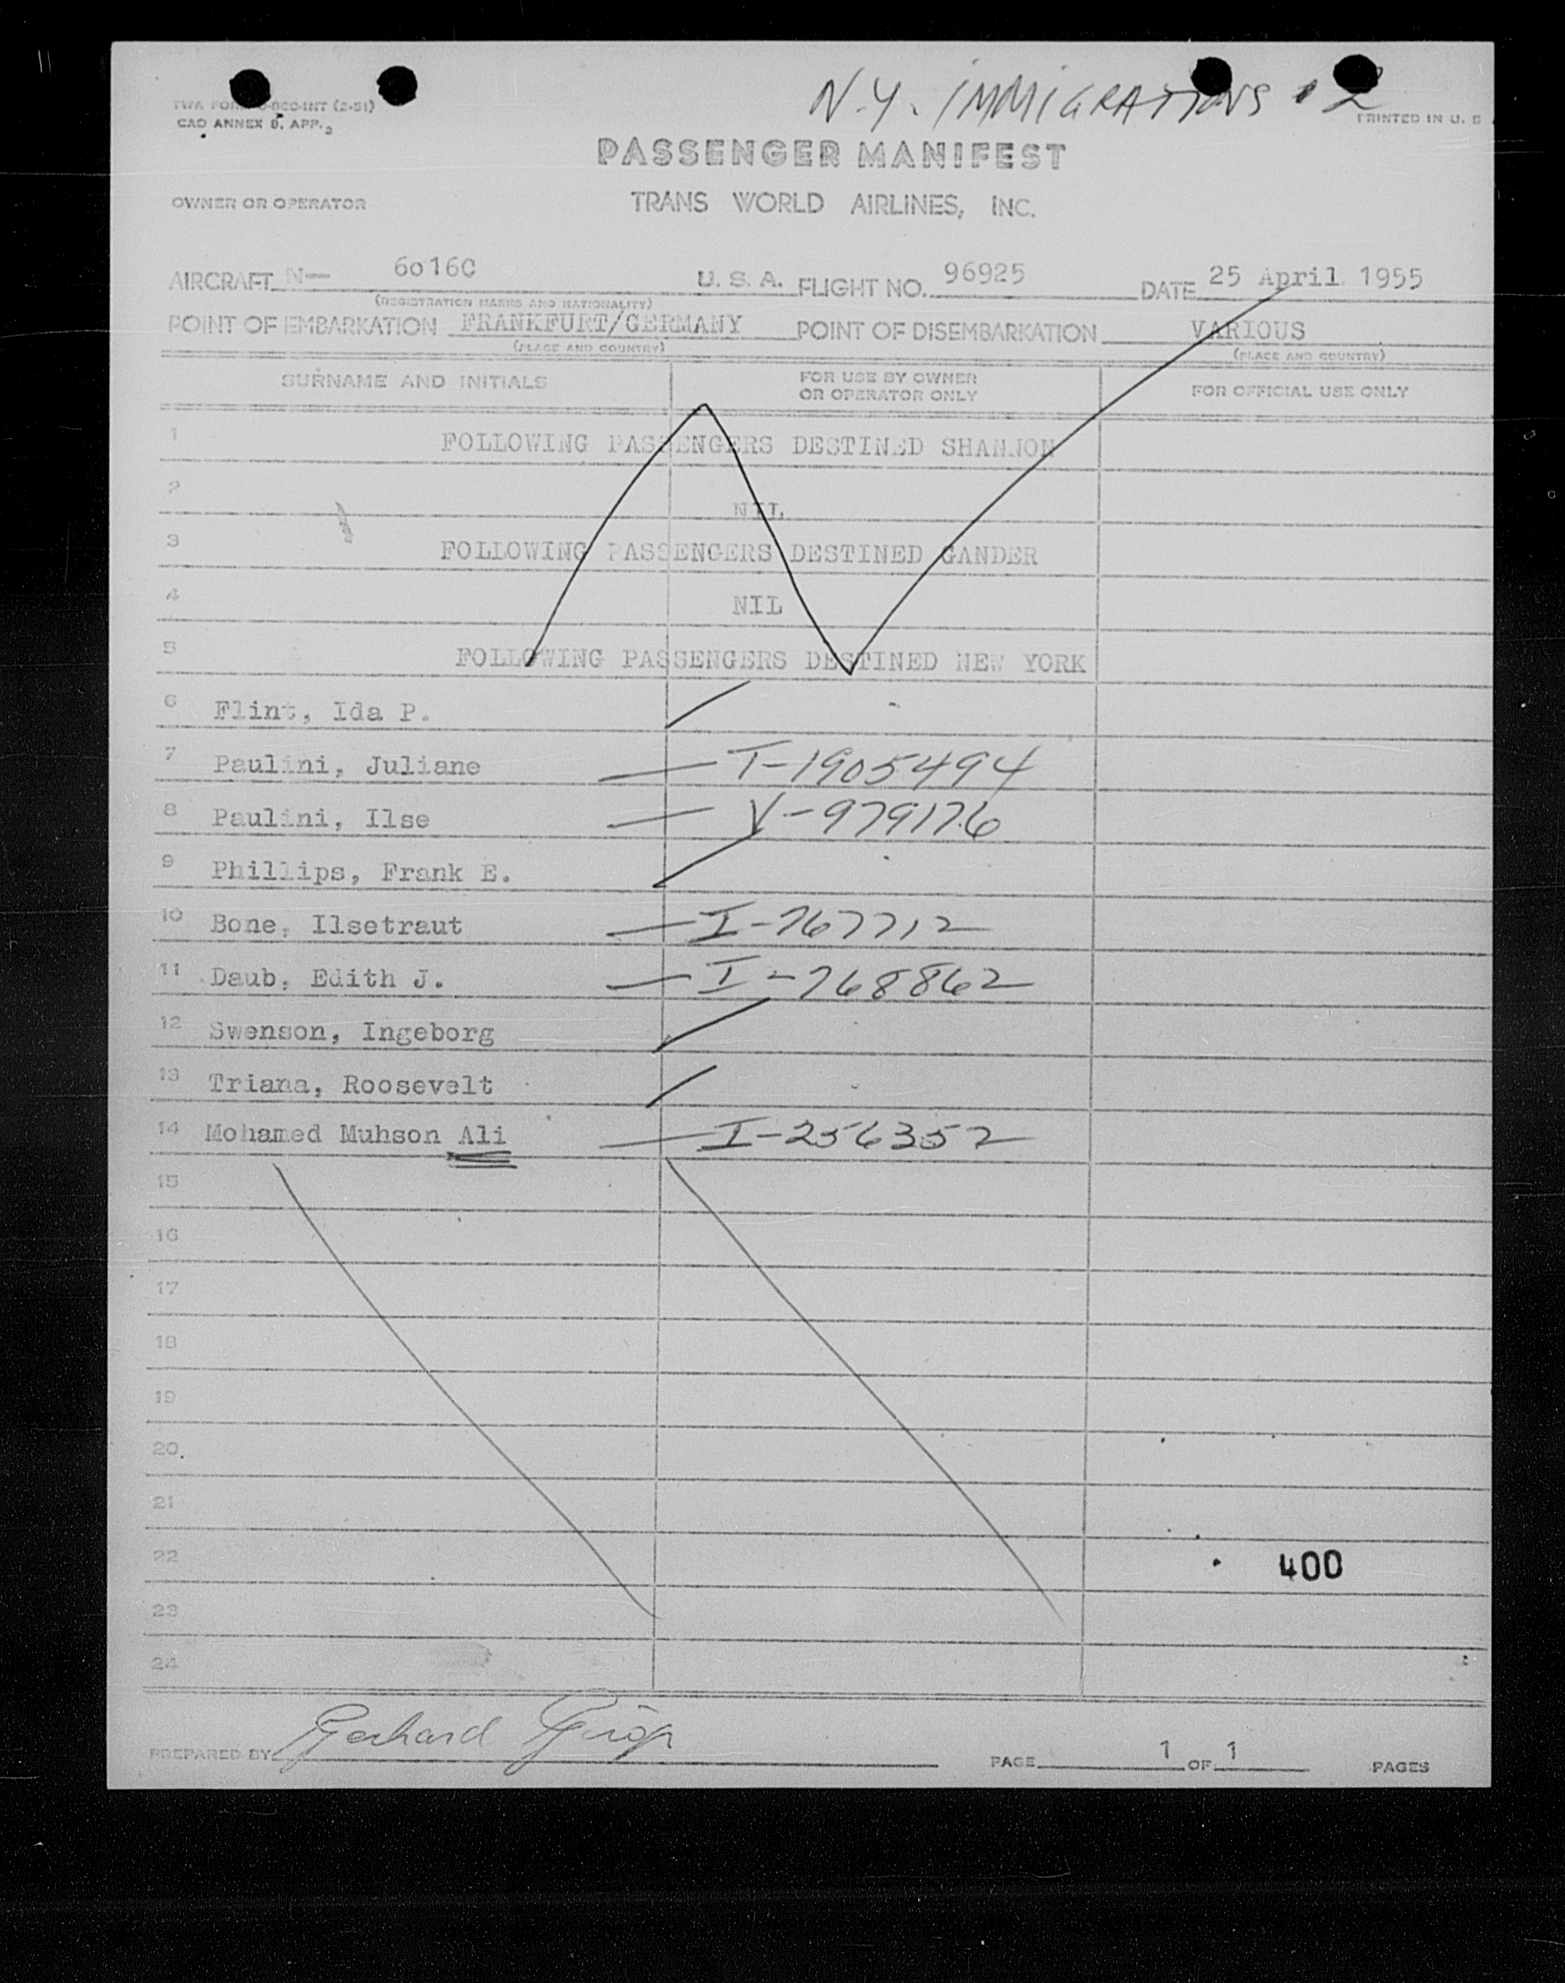 N.Y. IMMIGRATIONS 2
CAO ANNEX 9, APP. 3
PRINTED IN U. S
PASSENGER MANIFEST
OWNER OR OPERATOR TRANS WORLD AIRLINES, INC.
AIRCRAFT N— 6016C U. S. A. FLIGHT NO. 96925 DATE 25 April 1955
(REGISTRATION MARKS AND NATIONALITY)
POINT OF EMBARKATION FRANKFURT/GERMANY POINT OF DISEMBARKATION VARIOUS
(PLACE AND COUNTRY) (PLACE AND COUNTRY)
SURNAME AND INITIALS FOR USE BY OWNER OR OPERATOR ONLY FOR OFFICIAL USE ONLY
1 FOLLOWING PASSENGERS DESTINED SHANNON
2 NIL
3 FOLLOWING PASSENGERS DESTINED GANDER
4 NIL
5 FOLLOWING PASSENGERS DESTINED NEW YORK
6 Flint, Ida P.
7 Paulini, Juliane — T-1905494
8 Paulini, Ilse — V-979176
9 Phillips, Frank E.
10 Bone, Ilsetraut — I-767712
11 Daub, Edith J. — I-768862
12 Swenson, Ingeborg
13 Triana, Roosevelt
14 Mohamed Muhson Ali — I-256352
15
16
17
18
19
20
21
22 400
23
24
PREPARED BY Gerhard PAGE 1 OF 1 PAGES